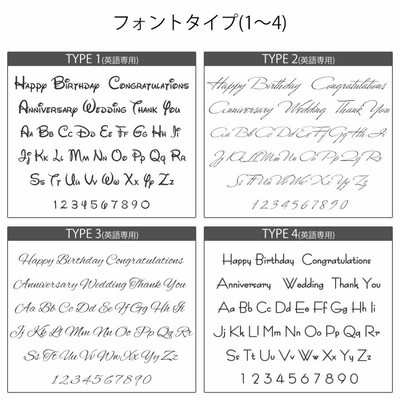 フォントタイプ(1〜4)
TYPE 1(英語専用)
Happy Birthday Congratulations
Anniversary Wedding Thank You
Aa Bb Cc Dd Ee Ff Gg Hh Ii
Jj Kk Ll Mm Nn Oo Pp Qq Rr
Ss Tt Uu Vv Ww Xx Yy Zz
1 2 3 4 5 6 7 8 9 0
TYPE 2(英語専用)
Happy Birthday Congratulations
Anniversary Wedding Thank You
Aa Bb Cc Dd Ee Ff Gg Hh Ii
Jj Kk Ll Mm Nn Oo Pp Qq Rr
Ss Tt Uu Vv Ww Xx Yy Zz
1 2 3 4 5 6 7 8 9 0
TYPE 3(英語専用)
Happy Birthday Congratulations
Anniversary Wedding Thank You
Aa Bb Cc Dd Ee Ff Gg Hh Ii
Jj Kk Ll Mm Nn Oo Pp Qq Rr
Ss Tt Uu Vv Ww Xx Yy Zz
1 2 3 4 5 6 7 8 9 0
TYPE 4(英語専用)
Happy Birthday Congratulations
Anniversary Wedding Thank You
Aa Bb Cc Dd Ee Ff Gg Hh Ii
Jj Kk Ll Mm Nn Oo Pp Qq Rr
Ss Tt Uu Vv Ww Xx Yy Zz
1 2 3 4 5 6 7 8 9 0